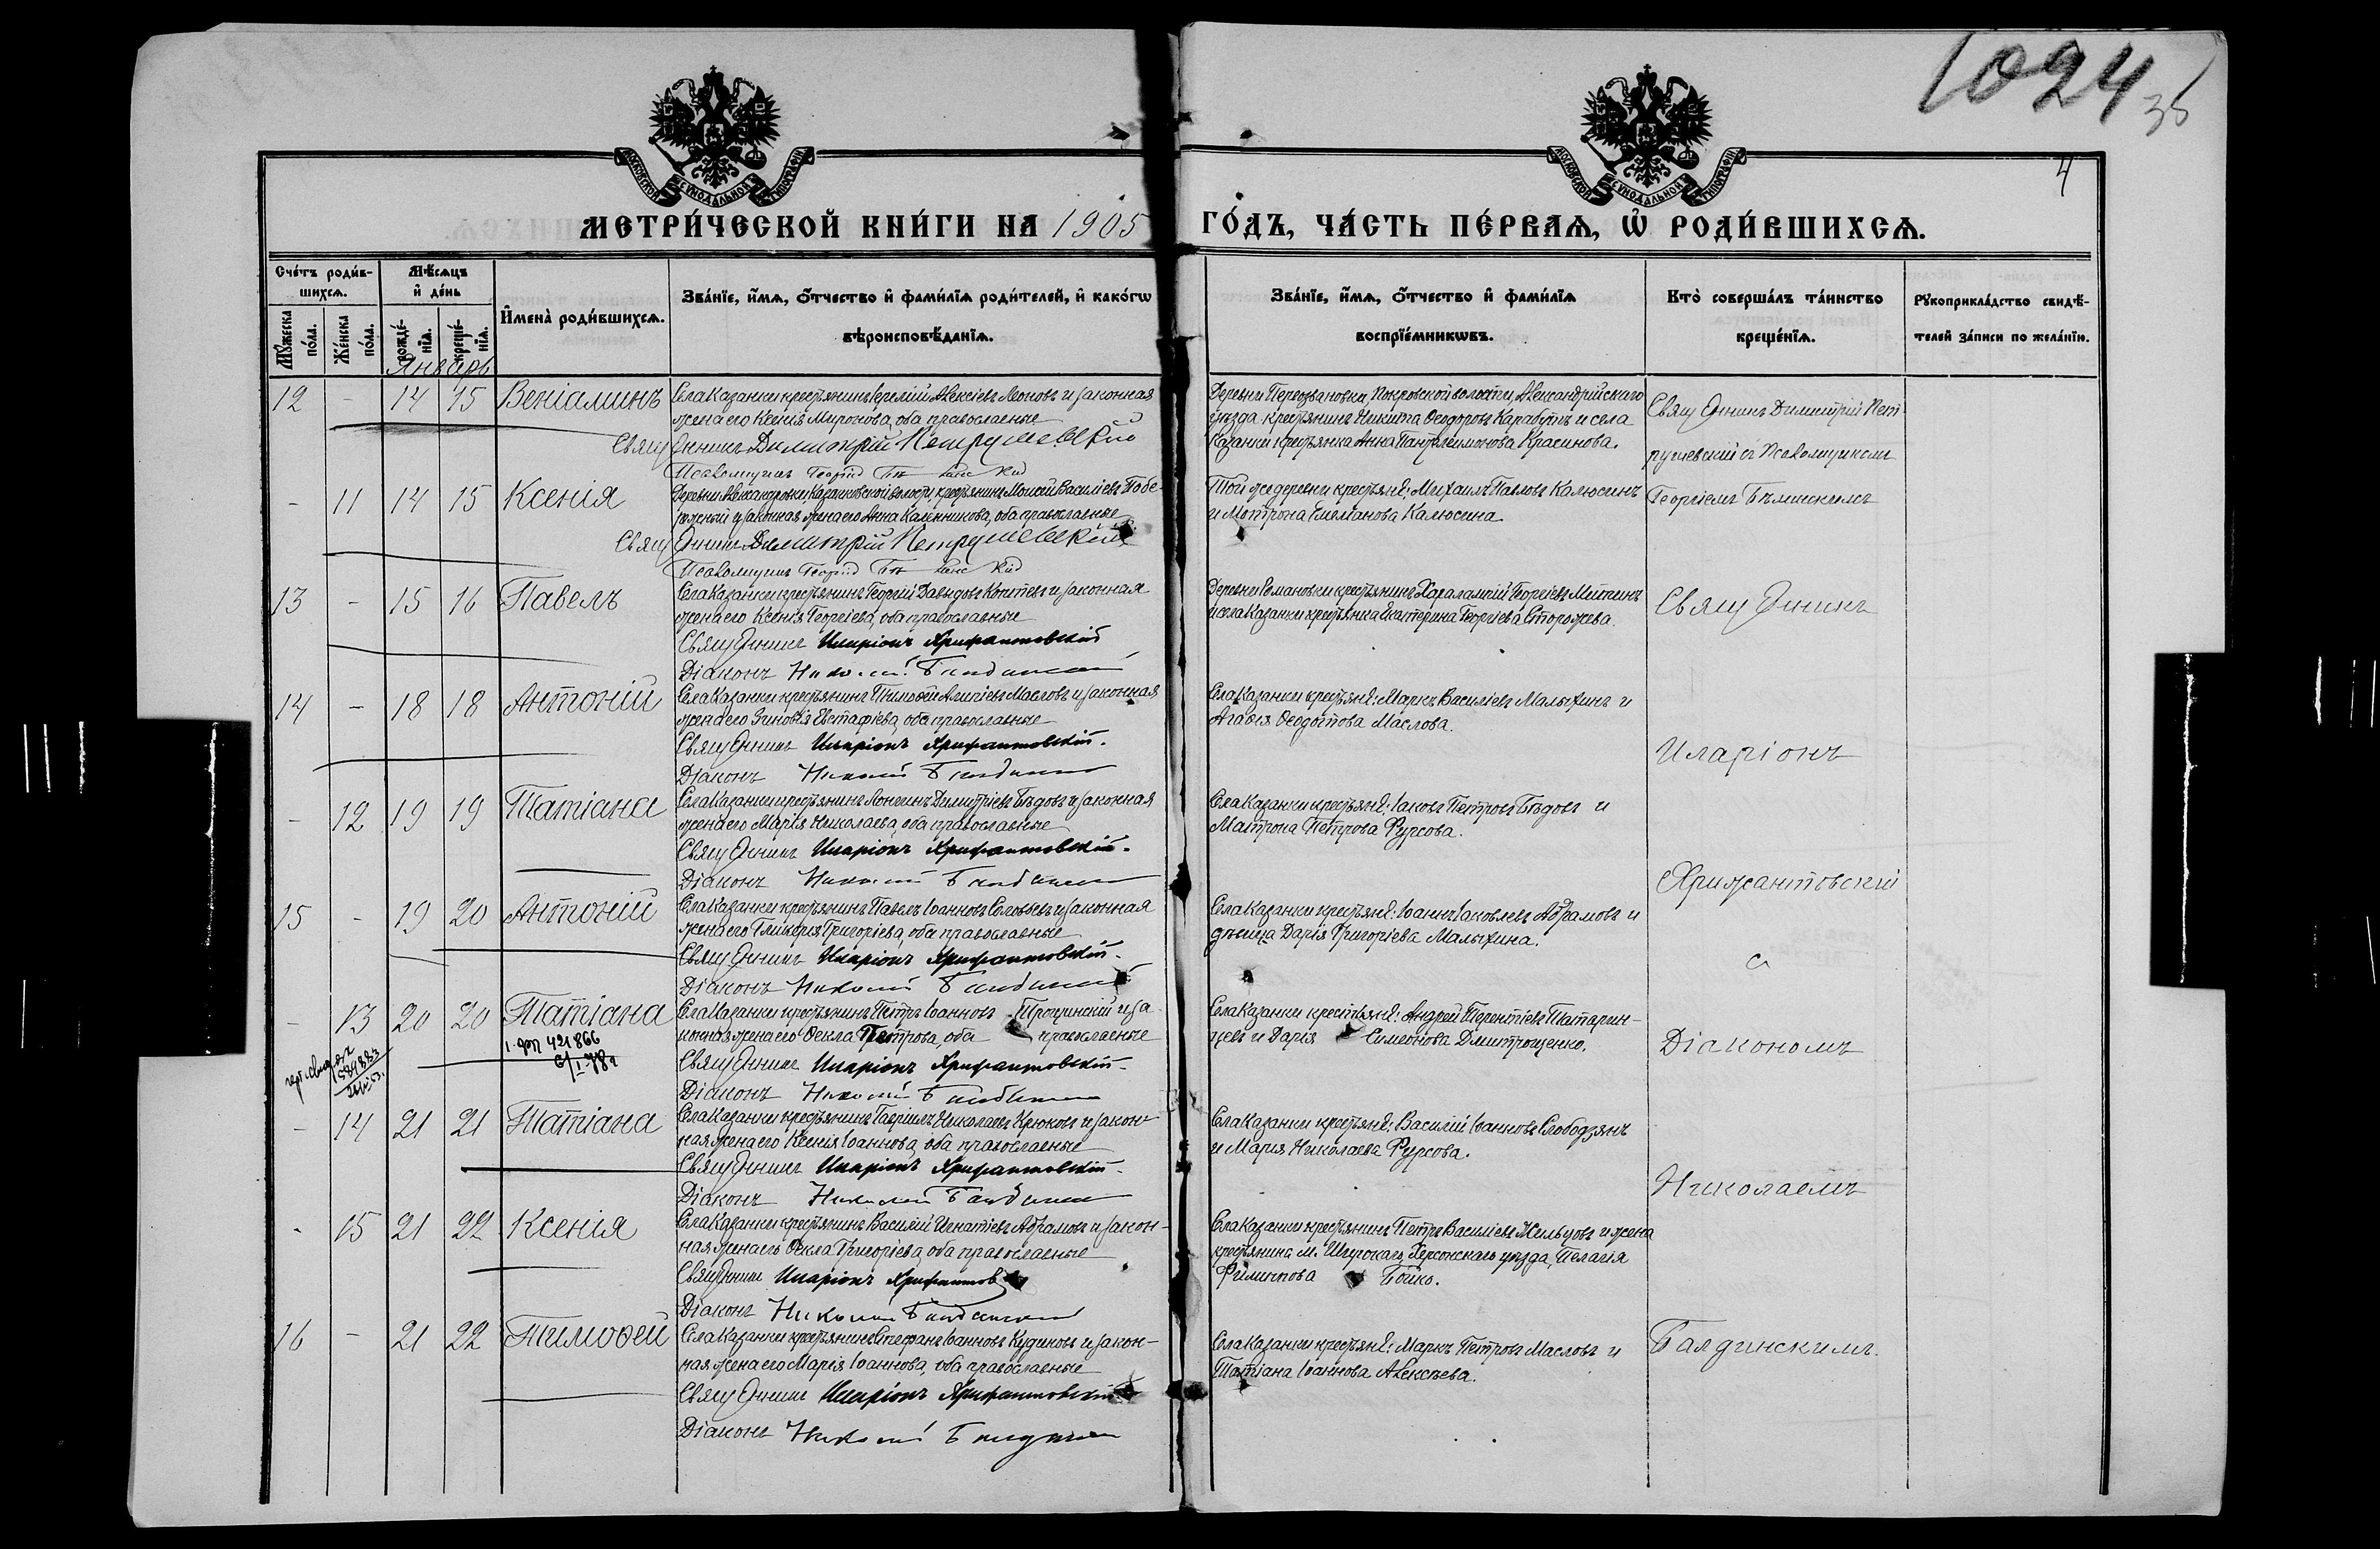 1024
35
4
МОСКОВСКОЙ СѴНОДАЛЬНОЙ ТИПОГРАФІИ
МОСКОВСКОЙ СѴНОДАЛЬНОЙ ТИПОГРАФІИ
МЕТРИ́ЧЕСКОЙ КНИ́ГИ НА 1905 ГО́ДЪ, ЧА́СТЬ ПЕ́РВАѦ, Ѽ РОДИ́ВШИХСѦ.
Сче́тъ роди́в-
шихсѧ.
Мꙋ́жеска по́ла.
Же́нска по́ла.
Мѣ́сѧцъ
и҆ де́нь
рожде́-
нїѧ.
креще́-
нїѧ.
Январь
И҆мена̀ роди́вшихсѧ.
Зва́нїе, и҆́мѧ, ѻ҆́тчество и҆ фами́лїѧ роди́телей, и҆ како́гѡ
вѣроисповѣ́данїѧ.
Зва́нїе, и҆́мѧ, ѻ҆́тчество и҆ фами́лїѧ
воспрїе́мникѡвъ.
Кто̀ соверша́лъ та́инство
креще́нїѧ.
Рꙋкоприкла́дство свидѣ́-
телей за́писи по жела́нїю.
12 - 14 15 Веніаминъ
Села Казанки крестьянинъ Іеремій Алексіевъ Леоновъ и законная
жена его Ксенія Миронова, оба православные
Священникъ Димитрій Петрушевскій
Псаломщикъ Георгій
Деревни Покровской волости, Александрійскаго
уѣзда крестьянинъ Никита Ѳеодоровъ Карабутъ и села
Казанки крестьянка Анна Пантелеимонова Красинова.
Священникъ Димитрій Пет
рушевскій съ Псаломщикомъ
- 11 14 15 Ксенія
Деревни Александровки Казанковской волости, крестьянинъ Моисей Василіевъ Побе-
режный и законная жена его Анна Калинникова, оба православные
Священникъ Димитрій Петрушевскій
Псаломщикъ Георгій
Той же деревни крестьяне: Михаилъ Павловъ Калюсинъ
и Мотрона Емеліанова Калюсина.
Георгіемъ
13 - 15 16 Павелъ
Села Казанки крестьянинъ Георгій Давидовъ и законная
жена его Ксенія Георгіева, оба православные
Священникъ Иларіонъ Хрисантовскій
Діаконъ Николай Балдинскій
Деревни Романовки крестьянинъ Харалампій Георгіевъ
и села Казанки крестьянка Екатерина Георгіева Сторожева.
Священникъ
14 - 18 18 Антоній
Села Казанки крестьянинъ Тимоѳей Масловъ и законная
жена его Зиновія Евстафіева, оба православные
Священникъ Иларіонъ Хрисантовскій.
Діаконъ Николай Балдинскій
Села Казанки крестьяне: Маркъ Василіевъ Малыхинъ и
Агаѳія Ѳеодотова Маслова.
Иларіонъ
- 12 19 19 Татіана
Села Казанки крестьянинъ Лонгинъ Димитріевъ Бѣдовъ и законная
жена его Марія Николаева, оба православные
Священникъ Иларіонъ Хрисантовскій.
Діаконъ Николай Балдинскій
Села Казанки крестьяне: Іаковъ Петровъ Бѣдовъ и
Матрона Петрова Фурсова.
Хрисантовскій
15 - 19 20 Антоній
Села Казанки крестьянинъ Павелъ Іоанновъ Соловьевъ и законная
жена его Гликерія Григоріева, оба православные
Священникъ Иларіонъ Хрисантовскій.
Діаконъ Николай Балдинскій
Села Казанки крестьяне: Іоаннъ Іаковлевъ Абрамовъ и
дѣвица Дарія Григоріева Малыхина.
съ
- 13 20 20 Татіана
421866
6/I-78г
Села Казанки крестьянинъ Петръ Іоанновъ и за-
конная жена его Ѳекла Петрова, оба православные
Священникъ Иларіонъ Хрисантовскій
Діаконъ Николай Балдинскій
Села Казанки крестьяне: Андрей Терентіевъ Татарин-
цевъ и Дарія Симеонова Дмитрощенко.
Діакономъ
- 14 21 21 Татіана
Села Казанки крестьянинъ Гавріилъ Николаевъ Крюковъ и закон-
ная жена его Ксенія Іоаннова, оба православные
Священникъ Иларіонъ Хрисантовскій.
Діаконъ Николай Балдинскій
Села Казанки крестьяне: Василій Іоанновъ Слободзянъ
и Марія Николаева Фурсова.
Николаемъ
- 15 21 22 Ксенія
Села Казанки крестьянинъ Василій Игнатіевъ Абрамовъ и закон-
ная жена его Ѳекла Григоріева, оба православные
Священникъ Иларіонъ Хрисантов
Діаконъ Николай Балдинскій
Села Казанки крестьянинъ Петръ Василіевъ Жильцовъ и жена
крестьянина м. Херсонскаго уѣзда, Пелагія
Филиппова Бойко.
16 - 21 22 Тимоѳей
Села Казанки крестьянинъ Стефанъ Іоанновъ Кудиновъ и закон-
ная жена его Марія Іоаннова, оба православные
Священникъ Иларіонъ Хрисантовскій
Діаконъ Николай Балдинскій
Села Казанки крестьяне: Маркъ Петровъ Масловъ и
Татіана Іоаннова Алексѣева.
Балдинскимъ.